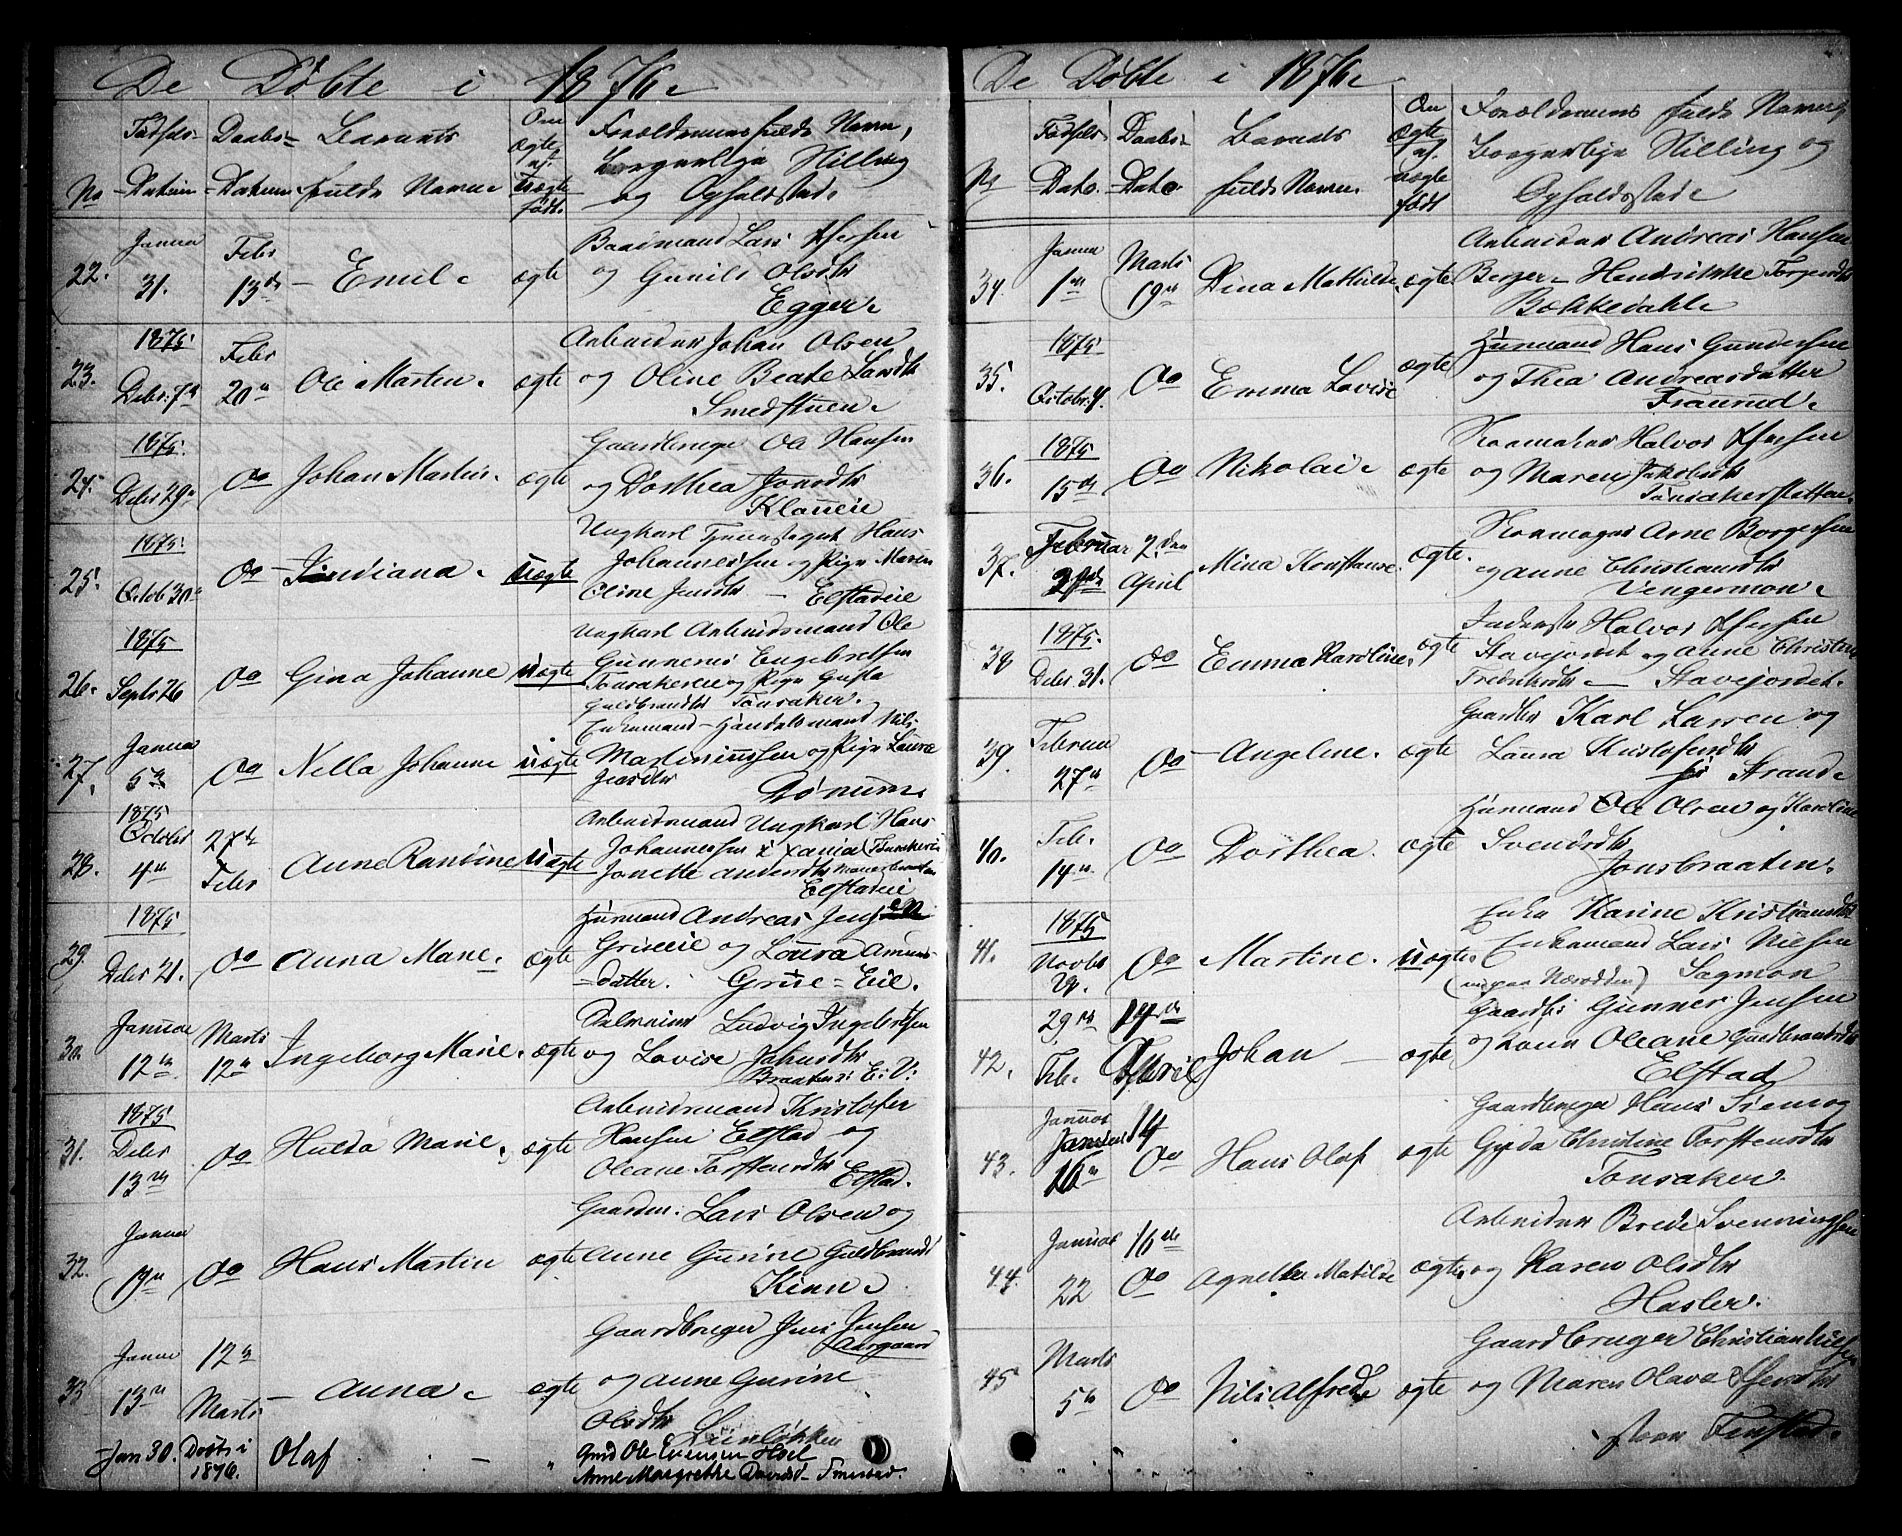 De Døbte i 1876.
No
Fødsels-
Datum
Daabs-
Datum
Barnets
fulde Navne
Om
ægte
el.
uægte
født.
Forældrenes fulde Navne,
borgerlige Stilling
og Opholdssted.
22.
Januar
31.
Febr
13de
Emil.
ægte
Baadmand Lars
og Gunild Olsdtr
Egger.
23.
1875
Debr. 7de
Febr
20de
Ole Martin.
ægte
Arbeider Johan Olsen
og Oline Beate Larsdtr
Smedstuen.
24.
1875.
Debr 29de
Do
Johan Martin.
ægte
Gaardbruger Ole Hansen
og Dorthea Jonsdtr
25.
1875.
Octob 30te
Do
uægte
Ungkarl Hans
Johannessen og Pige Maren
Oline Jensdtr - Elstadeie
26.
1875
Septr 26
Do
Gina Johanne
uægte
Ungkarl Arbeidsmand Ole
Gunnerius Engebretsen
Tønsakereie og Pige
Guldbrandsdtr Tønsaker.
27.
Januar
5te
Do
Nella Johanne
uægte
Enkemand - Handelsmand Nils
Martiniussen og Pige Laura
Dønum.
28.
1875
October
4de
27de
Febr
Anne Randine
uægte
Arbeidsmand Ungkarl Hans
Johannessen
Jonette Andersdtr
Elstadeie
29.
1875
Debr 21.
Do
Anna Marie.
ægte
Husmand Andreas Jensen
Grueeie og Laura Amunds-
datter. Grue-Eie.
30.
Januar
12te
Marts
12te
Ingeborg Marie.
ægte
Ludvig Ingebretsen
og Lovise
Braaten: E: V:
31.
1875
Debr
13de
Do
Hulda Marie.
ægte
Arbeidsmand Kristofer
Hansen Elstad og
Oleane Torstensdtr
Elstad.
32.
Januar
19de
Do
Hans Martin
ægte
Gaardm. Lars Olsen og
Anne Gurine Guldbrandsd
Kinn.
33
Januar
13de
12te
Marts
Anna.
ægte
Gaardbruger Jens Jensen
Aasgaard
og Anne Gurine
Olsdtr
Jan 30.
Døbt i
1876.
Olaf
"
Gmd Ole Evensen Hoel
Anne Margrethe Davidsd
De Døbte i 1876.
No
Fødsels
Dato.
Daabs-
Dato.
Barnets
fulde Navne.
Om
ægte
el.
uægte
født
Forældrenes fulde Navne,
Borgerlige Stilling og
Opholdssted.
34.
Januar
1ste
Marts
19de
Dina Mathilde.
ægte.
Arbeider Andreas Hansen
Berger - Hendrikke Torgersdtr
Bækkedahl.
35.
1875
October 4.
Do
Emma Lovise
ægte
Husmand Hans Gundersen
og Thea Andreasdatter
36.
1875
15de
Do
Nikolai.
ægte
Skomaker Halvor
og Maren Jakobsdtr
Tønsakersletten.
37.
Februar
2den
April
Mina Konstanse.
ægte.
Skomager Arne Borgersen
og Anne Christiansdtr
Vengermoen.
38
1875.
Debr. 31.
Do
Emma Karoline.
ægte
Inderster Halvor
Stavejordet og Anne Christine
Fredriksdtr - Stavejordet.
39.
Februar
27de
Do
Angeline.
ægte
Gaardbr Karl Larsen og
Laura Kristofersdtr
Strand.
40.
Feb.
14de
Do
Dorthea.
ægte
Husmand Ole Olsen og Karoline
Svendsdtr
Jonsbraaten.
41.
1875
Novbr
29.
Do
Martine.
uægte.
Enke Karine Kristiansdtr
Enkemand Lars Nilsen
Sagmoen
42.
29de
Feb.
17de
April
Johan
ægte
Gaardbr Gunner Jensen
og Kone Oleane Guldbrandsdtr
Elstad
43.
Januar
16de
Do
Hans Olaf
ægte
Gaardbruger Hans Siem og
Gyda Christine Torstensdtr
Tonsaker.
44.
Januar
22
16de
Do
Agnethe Matilde
ægte
Arbeider Brede Svenningsen
og Karen Olsdtr
Hasler.
45.
Marts
5te
Do
Nils Alfred
ægte
Gaardbruger Christian Nilsen
og Maren Olava
Store Finstad.